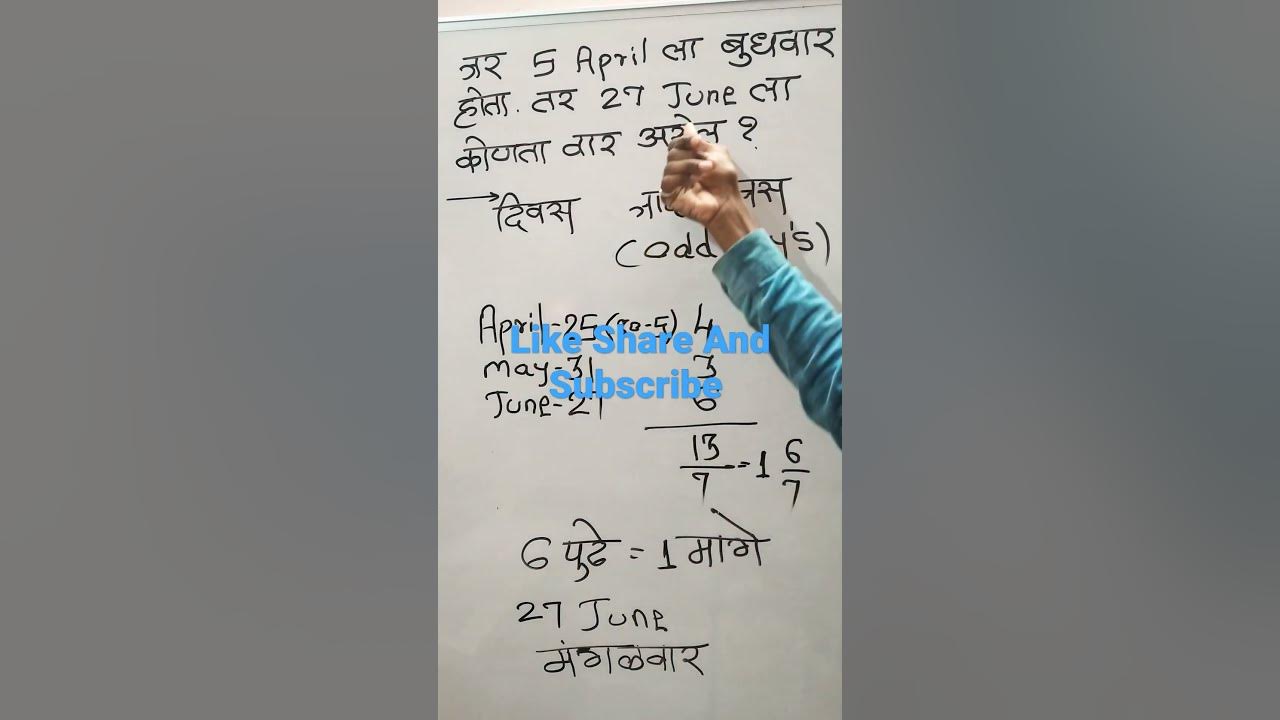 जर 5 April ला बुधवार
होता. तर 27 June ला
कोणता वार असेल ?
→ दिवस
(Odd
April-25 (30-5) 4
May-31 3
June-27 6
13/7 = 1 6/7
6 पुढे = 1 मागे
27 June
मंगळवार
Like Share And
Subscribe